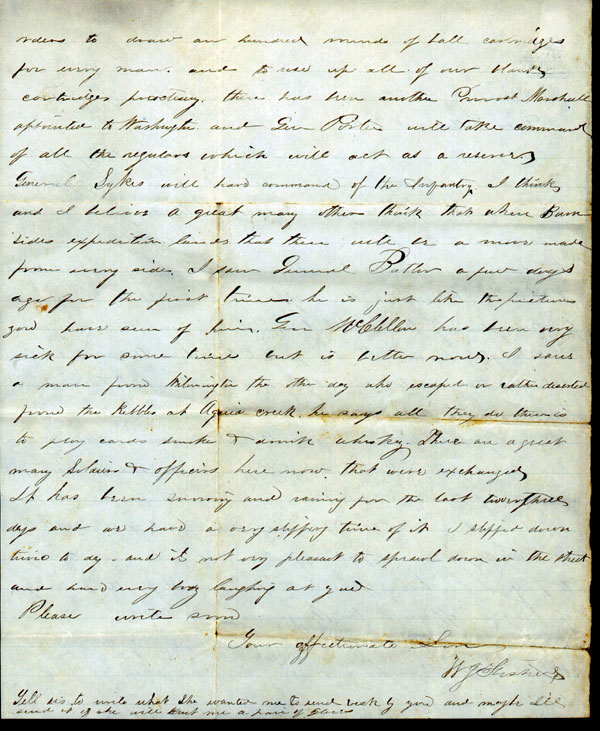 orders to draw an hundred rounds of ball cartridges
for every man. and to use up all of our blank
cartridges practising. there has been another Provost Marshall
appointed to Washington and Gen Porter will take command
of all the regulars which will act as a reserve
General Sykes will have command of the Infantry, I think
and I believe a great many others think that when Burn
sides expedition lands that there will be a move made
from every side. I saw General Butler a few days
ago for the first time. he is just like the pictures
you have seen of him. Gen McClellan has been very
sick for some time but is better now. I saw
a man from Wilmington the other day who escaped or rather deserted
from the Rebbles at Aquia creek. he says all they do there is
to play cards smoke & drink whiskey. There are a great
many Soldiers & officers here now that were exchanged
It has been snowing and raining for the last two or three
days and we have a very slippy time of it I slipped down
twice to day - and it not very pleasant to sprawl down in the street
and have every body laughing at you
Please write soon
Your affectionate Son
W J
Tell to write what She wanted me to send back by you and maybe Ill
send it if she will me a pair of